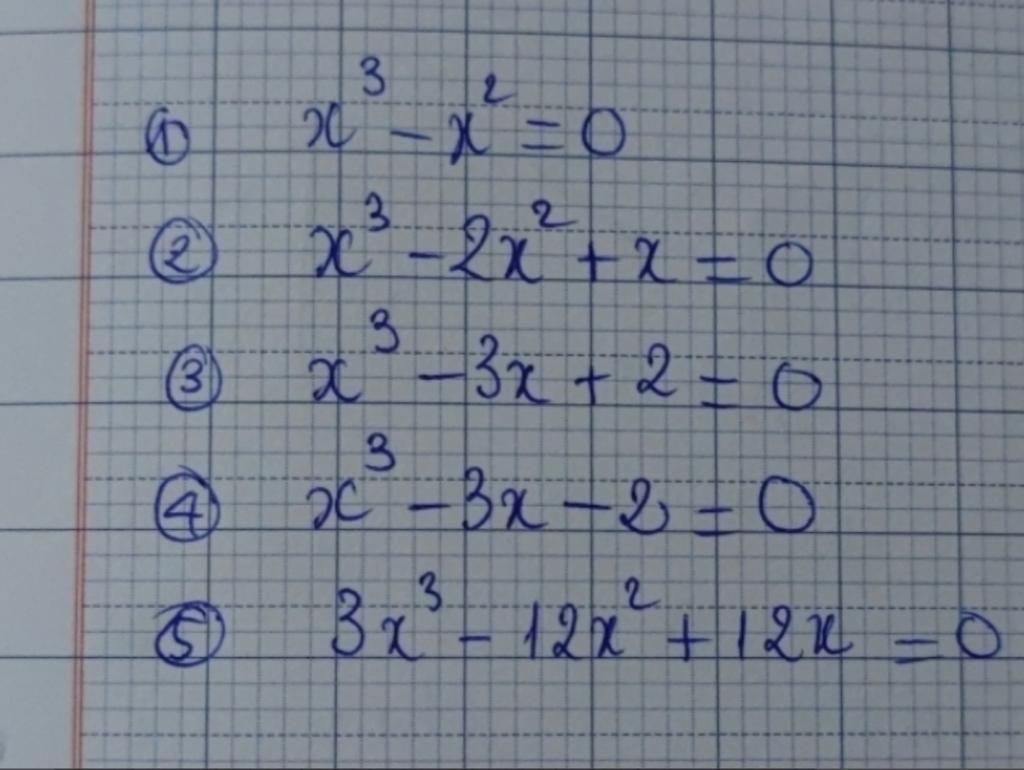 ① x³ - x² = 0
② x³ - 2x² + x = 0
③ x³ - 3x + 2 = 0
④ x³ - 3x - 2 = 0
⑤ 3x³ - 12x² + 12x = 0